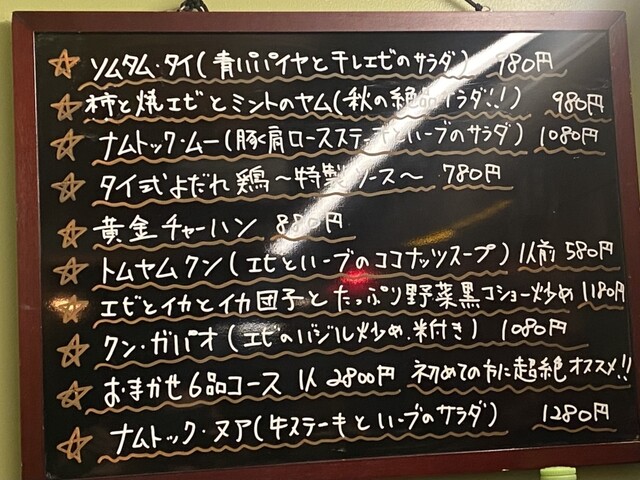 ☆ ソムタム・タイ(青パパイヤと干しエビのサラダ) 980円
☆ 柿と焼エビとミントのヤム(秋の絶品サラダ!!) 980円
☆ ナムトック・ムー(豚肩ロースステーキとハーブのサラダ) 1080円
☆ タイ式よだれ鶏〜特製ソース〜 780円
☆ 黄金チャーハン 880円
☆ トムヤムクン(エビとハーブのココナッツスープ) 1人前 580円
☆ エビとイカとイカ団子とたっぷり野菜黒コショー炒め 1180円
☆ クン・ガパオ(エビのバジル炒め.米付き) 1080円
☆ おまかせ6品コース 1人 2800円 初めての方に超絶オススメ!!
☆ ナムトック・ヌア(牛ステーキとハーブのサラダ) 1280円